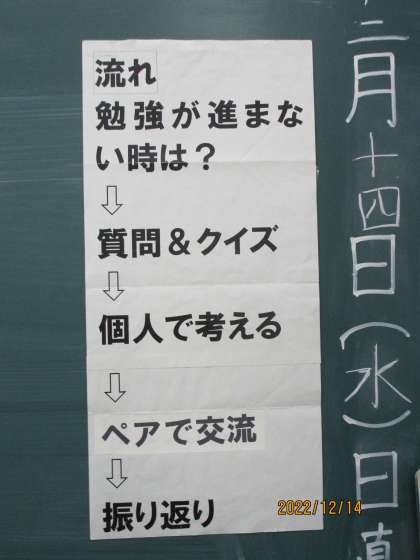 流れ
勉強が進まな
い時は？
⇩
質問＆クイズ
⇩
個人で考える
⇩
ペアで交流
⇩
振り返り
二月十四日（水）日直
2022/12/14